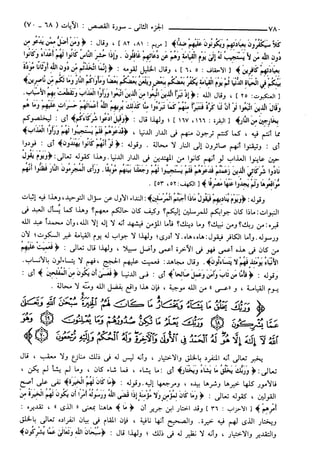 ـ ٧٨٠ ـ الجزء الثانى - سورة القصص : الآيات ( ٦٨ - ٧٠ )
كَلَّا سَيَكْفُرُونَ بِعِبَادَتِهِمْ وَيَكُونُونَ عَلَيْهِمْ ضِدًّا﴾ [ مريم : ٨١، ٨٢ ] ، وقال : ﴿ وَمَنْ أَضَلُّ مِمَّن يَدْعُو مِن
دُونِ اللَّهِ مَن لَّا يَسْتَجِيبُ لَهُ إِلَى يَوْمِ الْقِيَامَةِ وَهُمْ عَن دُعَائِهِمْ غَافِلُونَ . وَإِذَا حُشِرَ النَّاسُ كَانُوا لَهُمْ أَعْدَاءً وَكَانُوا
بِعِبَادَتِهِمْ كَافِرِينَ ﴾ [ الأحقاف : ٥ ، ٦ ] ، وقال الخليل لقومه : ﴿ إِنَّمَا اتَّخَذْتُم مِّن دُونِ اللَّهِ أَوْثَانًا مَّوَدَّةَ
بَيْنِكُمْ فِي الْحَيَاةِ الدُّنْيَا ثُمَّ يَوْمَ الْقِيَامَةِ يَكْفُرُ بَعْضُكُم بِبَعْضٍ وَيَلْعَنُ بَعْضُكُم بَعْضًا وَمَأْوَاكُمُ النَّارُ وَمَا لَكُم مِّن نَّاصِرِينَ﴾
[ العنكبوت : ٢٥ ] ، وقال الله : ﴿ إِذْ تَبَرَّأَ الَّذِينَ اتُّبِعُوا مِنَ الَّذِينَ اتَّبَعُوا وَرَأَوُا الْعَذَابَ وَتَقَطَّعَتْ بِهِمُ الْأَسْبَابُ .
وَقَالَ الَّذِينَ اتَّبَعُوا لَوْ أَنَّ لَنَا كَرَّةً فَنَتَبَرَّأَ مِنْهُمْ كَمَا تَبَرَّءُوا مِنَّا كَذَلِكَ يُرِيهِمُ اللَّهُ أَعْمَالَهُمْ حَسَرَاتٍ عَلَيْهِمْ وَمَا هُم
بِخَارِجِينَ مِنَ النَّارِ﴾ [ البقرة : ١٦٦ ، ١٦٧ ] ؛ ولهذا قال : ﴿ وَقِيلَ ادْعُوا شُرَكَاءَكُمْ﴾ أى : ليخلصوكم
مما أنتم فيه ، كما كنتم ترجون منهم فى الدار الدنيا ، ﴿ فَدَعَوْهُمْ فَلَمْ يَسْتَجِيبُوا لَهُمْ وَرَأَوُا الْعَذَابَ ﴾
أى : وتيقنوا أنهم صائرون إلى النار لا محالة . وقوله : ﴿ لَوْ أَنَّهُمْ كَانُوا يَهْتَدُونَ ﴾ أى : فودوا
حين عاينوا العذاب لو أنهم كانوا من المهتدين فى الدار الدنيا. وهذا كقوله تعالى: ﴿ وَيَوْمَ يَقُولُ
نَادُوا شُرَكَائِيَ الَّذِينَ زَعَمْتُمْ فَدَعَوْهُمْ فَلَمْ يَسْتَجِيبُوا لَهُمْ وَجَعَلْنَا بَيْنَهُم مَّوْبِقًا . وَرَأَى الْمُجْرِمُونَ النَّارَ فَظَنُّوا أَنَّهُم
مُّوَاقِعُوهَا وَلَمْ يَجِدُوا عَنْهَا مَصْرِفًا ﴾ [ الكهف : ٥٢، ٥٣ ] .
وقوله : ﴿وَيَوْمَ يُنَادِيهِمْ فَيَقُولُ مَاذَا أَجَبْتُمُ الْمُرْسَلِينَ﴾ : النداء الأول عن سؤال التوحيد، وهذا فيه إثبات
النبوات: ماذا كان جوابكم للمرسلين إليكم؟ وكيف كان حالكم معهم؟ وهذا كما يُسأل العبد فى
قبره: من ربك؟ ومن نبيك؟ وما دينك؟ فأما المؤمن فيشهد أنه لا إله إلا الله، وأن محمداً عبد الله
ورسوله. وأما الكافر فيقول: هاه، هاه. لا أدرى؛ ولهذا لا جواب له يوم القيامة غير السكوت؛ لأن
من كان فى هذه أعمى فهو فى الآخرة أعمى وأضل سبيلا ، ولهذا قال تعالى : ﴿ فَعَمِيَتْ عَلَيْهِمُ
الْأَنبَاءُ يَوْمَئِذٍ فَهُمْ لَا يَتَسَاءَلُونَ﴾. وقال مجاهد: فعميت عليهم الحجج ، فهم لا يتساءلون بالأنساب.
وقوله : ﴿ فَأَمَّا مَن تَابَ وَآمَنَ وَعَمِلَ صَالِحًا ﴾ أى : فى الدنيا ﴿ فَعَسَى أَن يَكُونَ مِنَ الْمُفْلِحِينَ ﴾ أى :
يوم القيامة ، و «عسى» من الله موجبة ، فإن هذا واقع بفضل الله ومَنِّه لا محالة .
﴿ وَرَبُّكَ يَخْلُقُ مَا يَشَاءُ وَيَخْتَارُ مَا كَانَ لَهُمُ الْخِيَرَةُ سُبْحَانَ اللَّهِ وَتَعَالَى
عَمَّا يُشْرِكُونَ ﴿٦٨﴾ وَرَبُّكَ يَعْلَمُ مَا تُكِنُّ صُدُورُهُمْ وَمَا يُعْلِنُونَ ﴿٦٩﴾ وَهُوَ اللَّهُ
يخبر تعالى أنه المنفرد بالخلق والاختيار ، وأنه ليس له فى ذلك منازع ولا معقب ، قال
تعالى: ﴿ وَرَبُّكَ يَخْلُقُ مَا يَشَاءُ وَيَخْتَارُ﴾ أى : ما يشاء ، فما شاء كان ، وما لم يشأ لم يكن ،
فالأمور كلها خيرها وشرها بيده ، ومرجعها إليه. وقوله : ﴿ مَا كَانَ لَهُمُ الْخِيَرَةُ﴾ نفى على أصح
القولين ، كقوله تعالى : ﴿ وَمَا كَانَ لِمُؤْمِنٍ وَلَا مُؤْمِنَةٍ إِذَا قَضَى اللَّهُ وَرَسُولُهُ أَمْرًا أَن يَكُونَ لَهُمُ الْخِيَرَةُ مِنْ
أَمْرِهِمْ ﴾ [ الأحزاب : ٣٦ ] وقد اختار ابن جرير أن ﴿ مَا ﴾ هاهنا بمعنى « الذى » ، تقديره :
ويختار الذى لهم فيه خيرة. والصحيح أنها نافية ، فإن المقام فى بيان انفراده تعالى بالخلق
والتقدير والاختيار ، وأنه لا نظير له فى ذلك ؛ ولهذا قال : ﴿ سُبْحَانَ اللَّهِ وَتَعَالَى عَمَّا يُشْرِكُونَ﴾